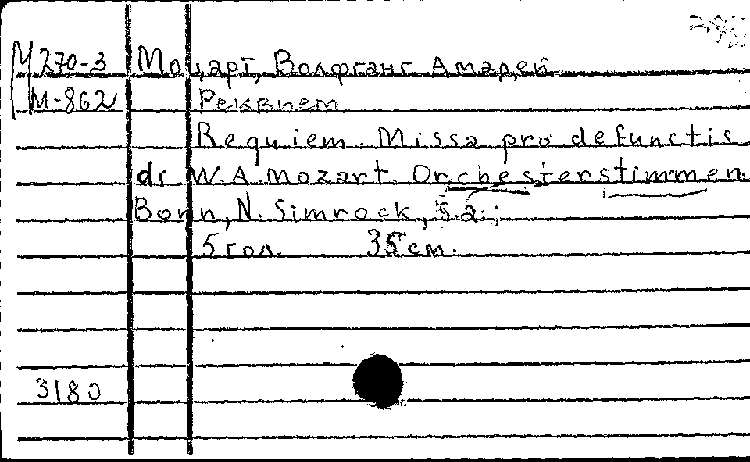 М270-3 Моцарт, Волфганг Амадей
М-862 Реквием
Requiem. Missa pro defunctis
di W.A. Mozart. Orchesterstimmen
Bonn, N. Simrock, s.a.;
5 гол. 35 см.
3180